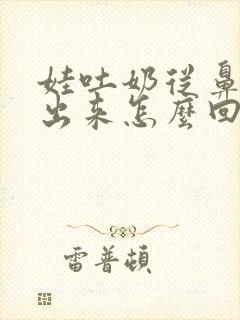 娃吐奶從鼻
出来怎麼回
雷普頓